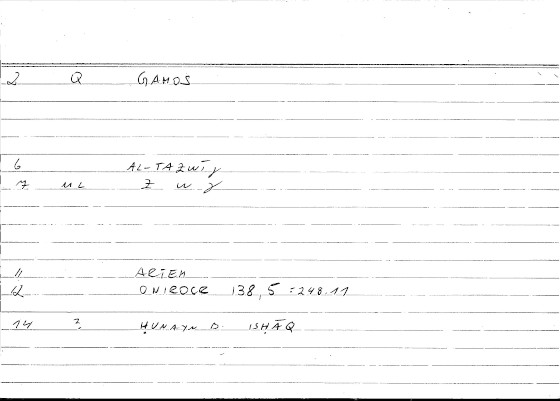 2 Q GAMOS
6 AL-TAZWĪǧ
7 UL Z W ǧ
11 ARTEM
12 ONIROCR 138,5 = 248.11
14 2 ḤUNAYN B. ISḤĀQ